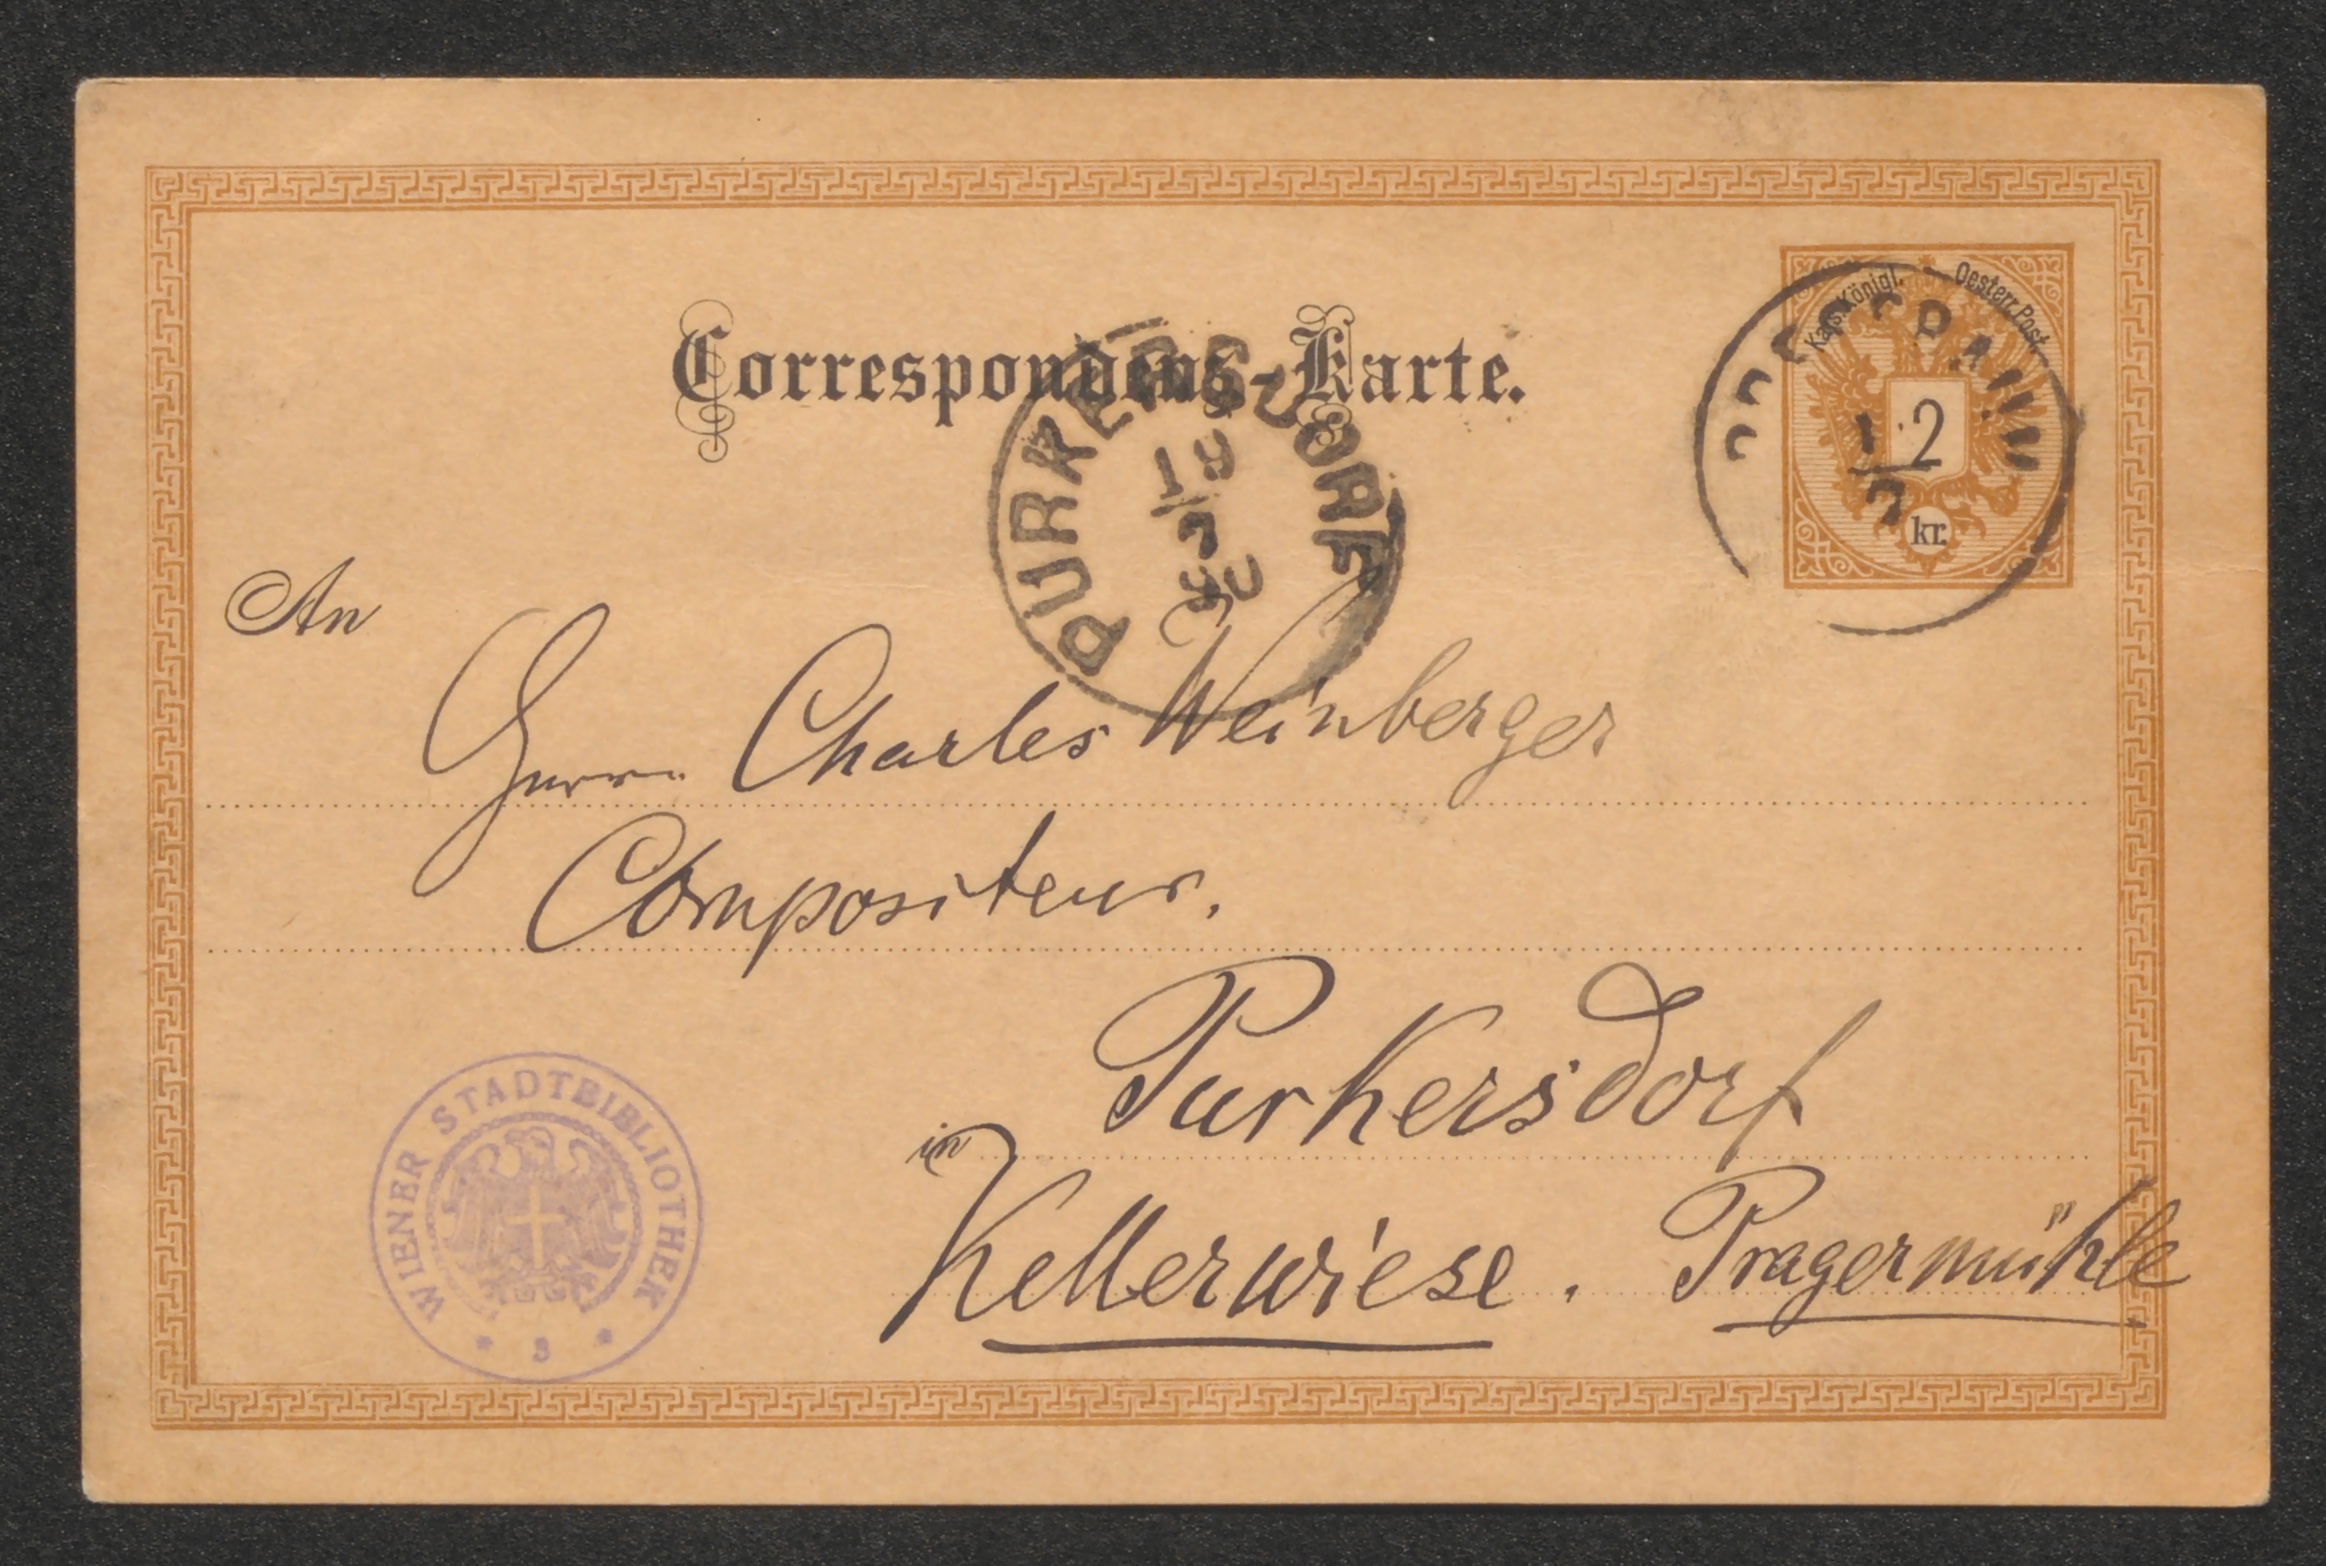 Correspondenz-Karte.
Kais. Königl. Oesterr. Post
2
kr.
1
7
PURKERSDORF
19
7
90
An
Herrn Charles Weinberger
Compositeur.
Purkersdorf
in
Kellerwiese. Pragermühle
WIENER STADTBIBLIOTHEK
* 3 *